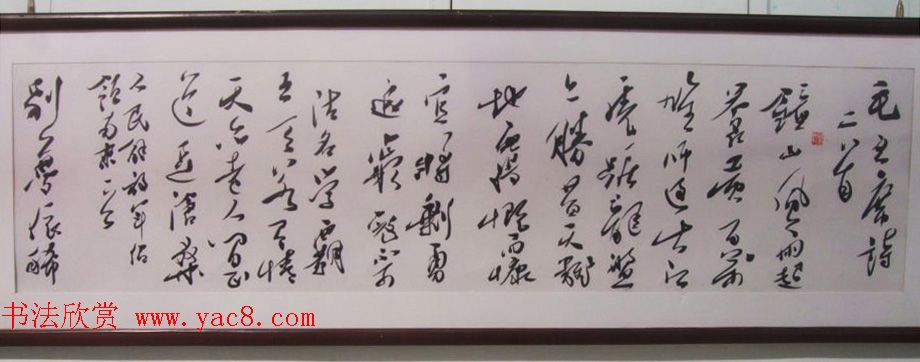 毛主席詩
二首
鐘山風雨起
蒼黃百萬
雄師過大江
虎踞龍盤
今勝昔天翻
地覆慨而慷
宜將剩勇
追窮寇不可
沽名學霸
王天若有情
天亦老人間正
道是滄桑
人民解放軍佔
領南京
別夢依稀
书法欣赏 www.yac8.com